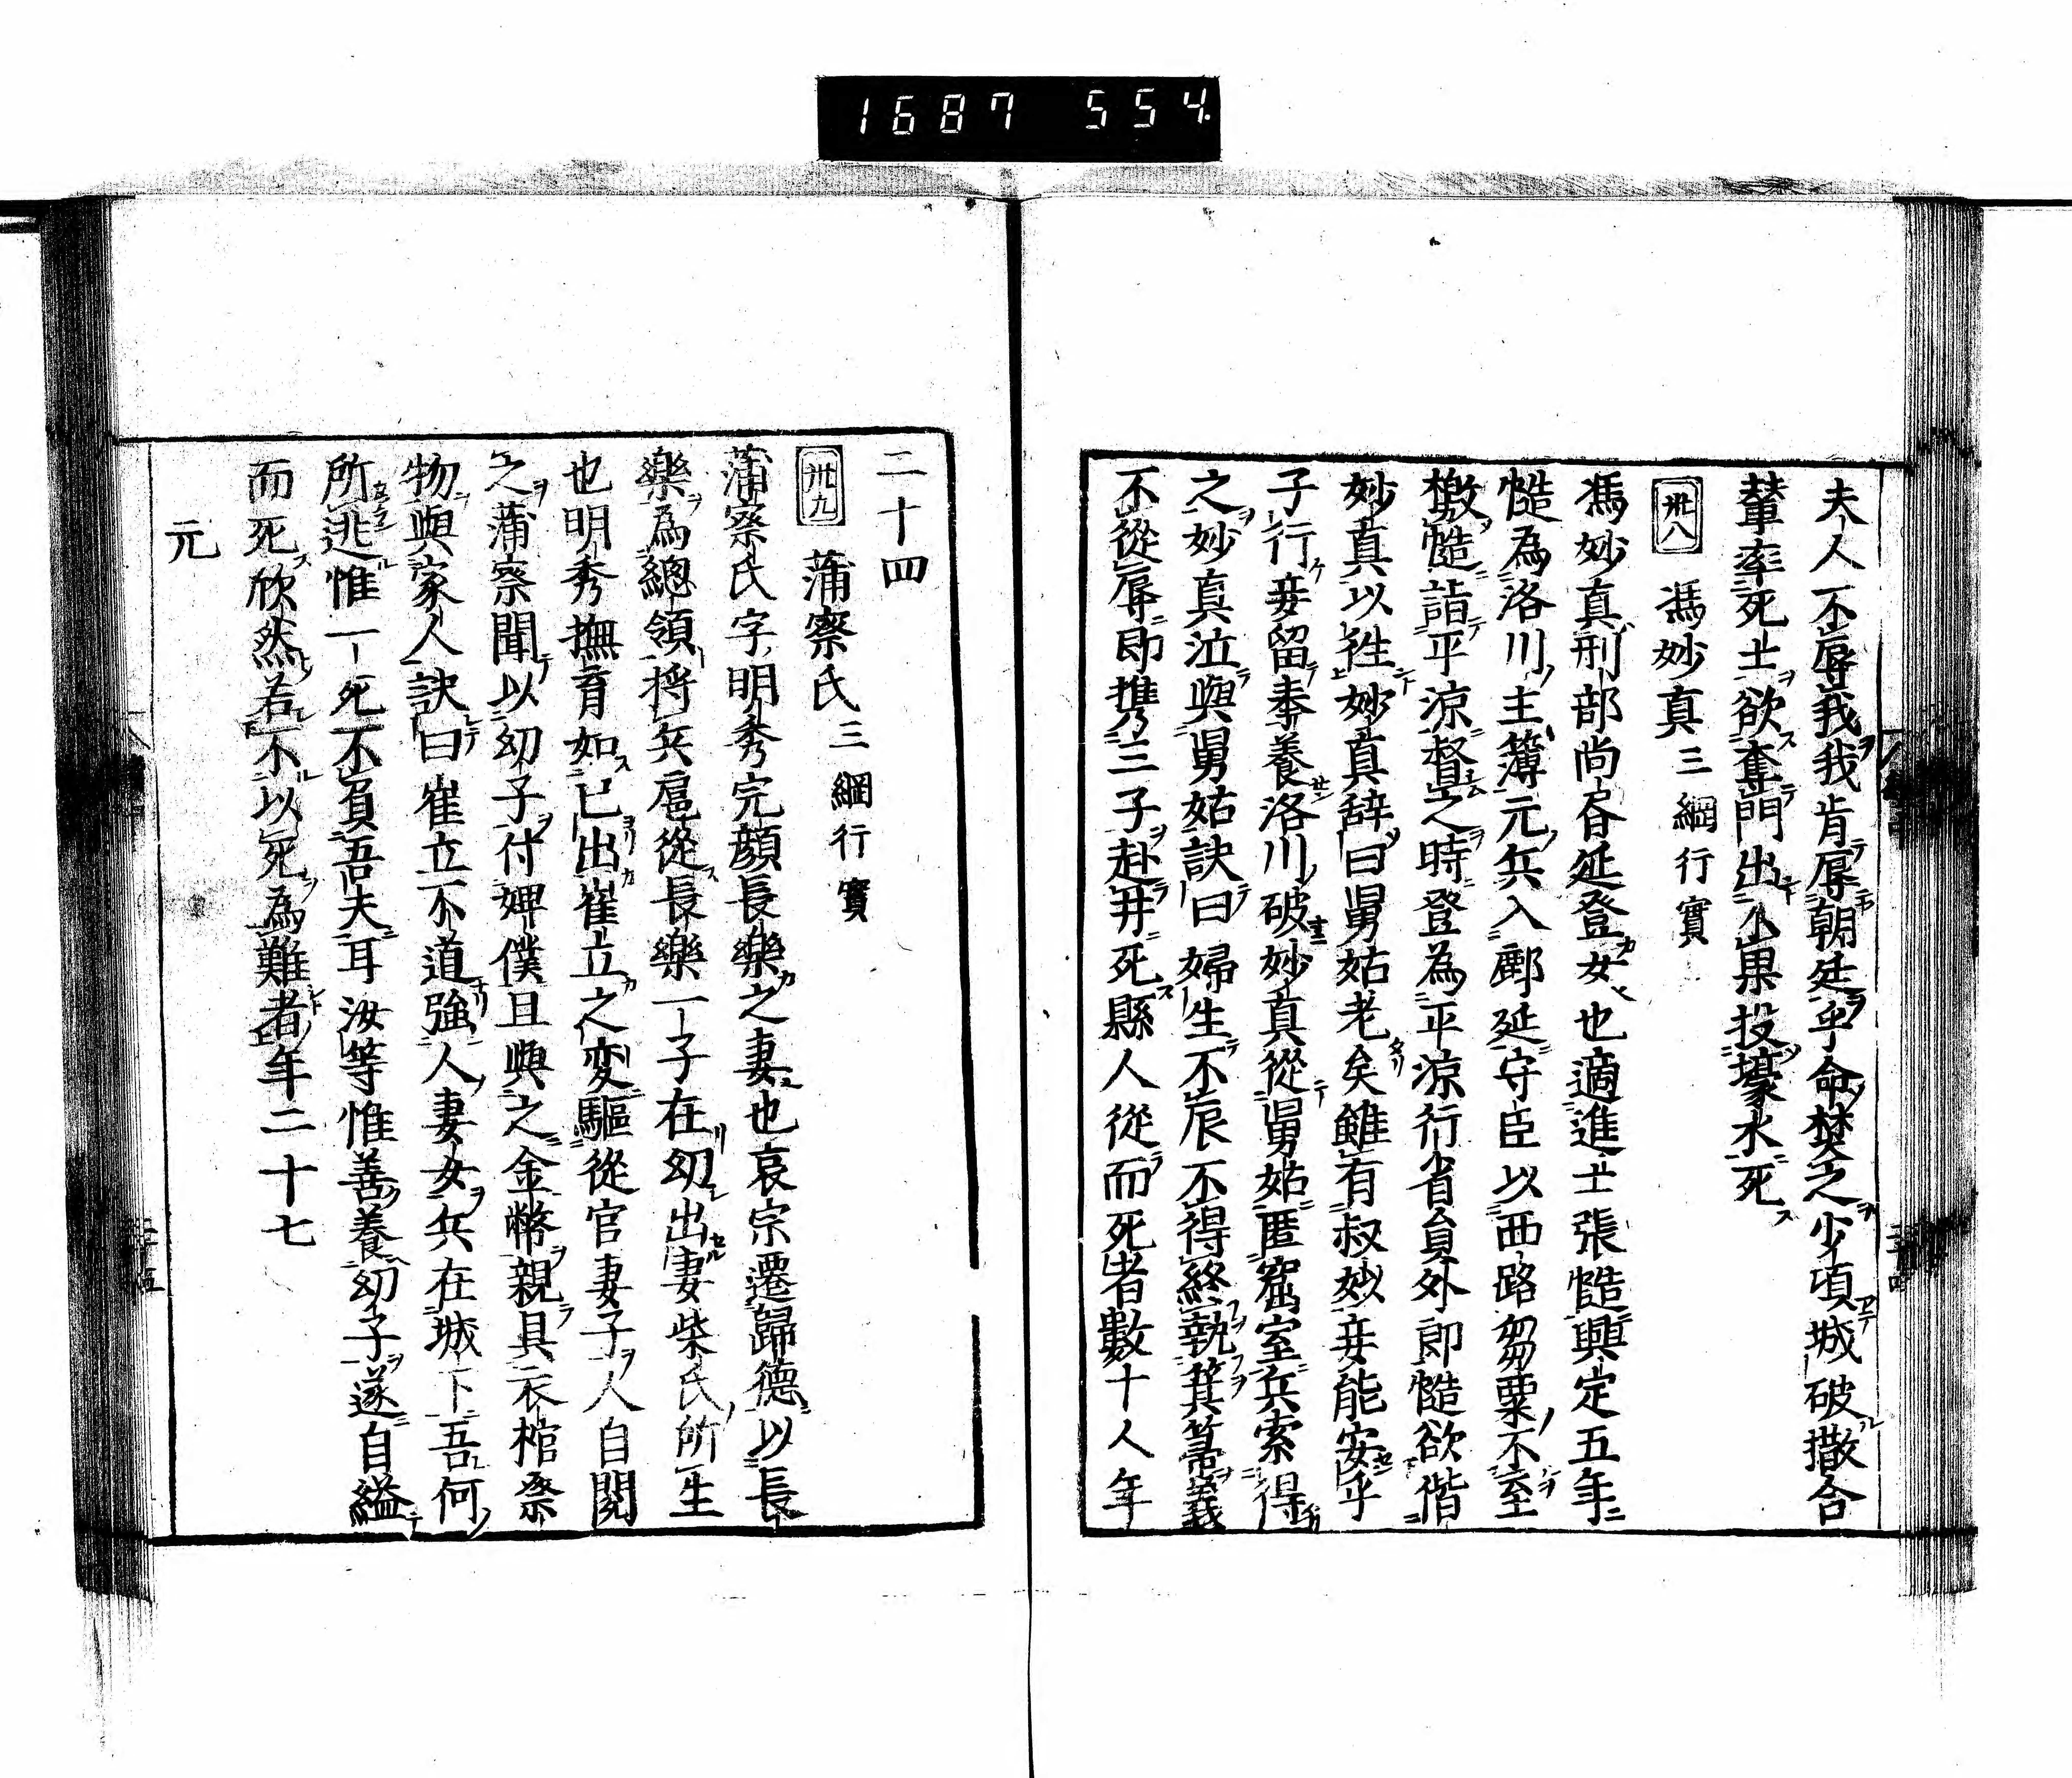 1687 554
夫人不辱我我肯辱朝廷乎命焚之少頃城破撒合
輦率死士欲奪門出不果投壕水死
卅八 馮妙真三綱行實
馮妙真刑部尚書延登女也適進士張慥興定五年
慥為洛川主簿元兵入鄜延守臣以西路芻粟不至
檄慥詣平涼督之時登為平涼行省員外即慥欲偕
妙真以徃妙真辞曰舅姑老矣雖有叔妙妾能安乎
子行妾留奉養洛川破妙真從舅姑匿窟室兵索得
之妙真泣與舅姑訣曰婦生不辰不得終執箕箒義
不從辱即攜三子赴井死縣人從而死者數十人年
二十四
卅九 蒲察氏三綱行實
蒲察氏字明秀完顔長樂之妻也哀宗遷歸德以長
樂為總領將兵扈從長樂一子在幼出妻柴氏所生
也明秀撫育如己出崔立之変驅從官妻子人自閱
之蒲察聞以幼子付婢僕且與之金幣親具衣棺祭
物與家人訣曰崔立不道強人妻女兵在城下吾何
所逃惟一死不負吾夫耳汝等惟善養幼子遂自縊
而死欣然若不以死為難者年二十七
元